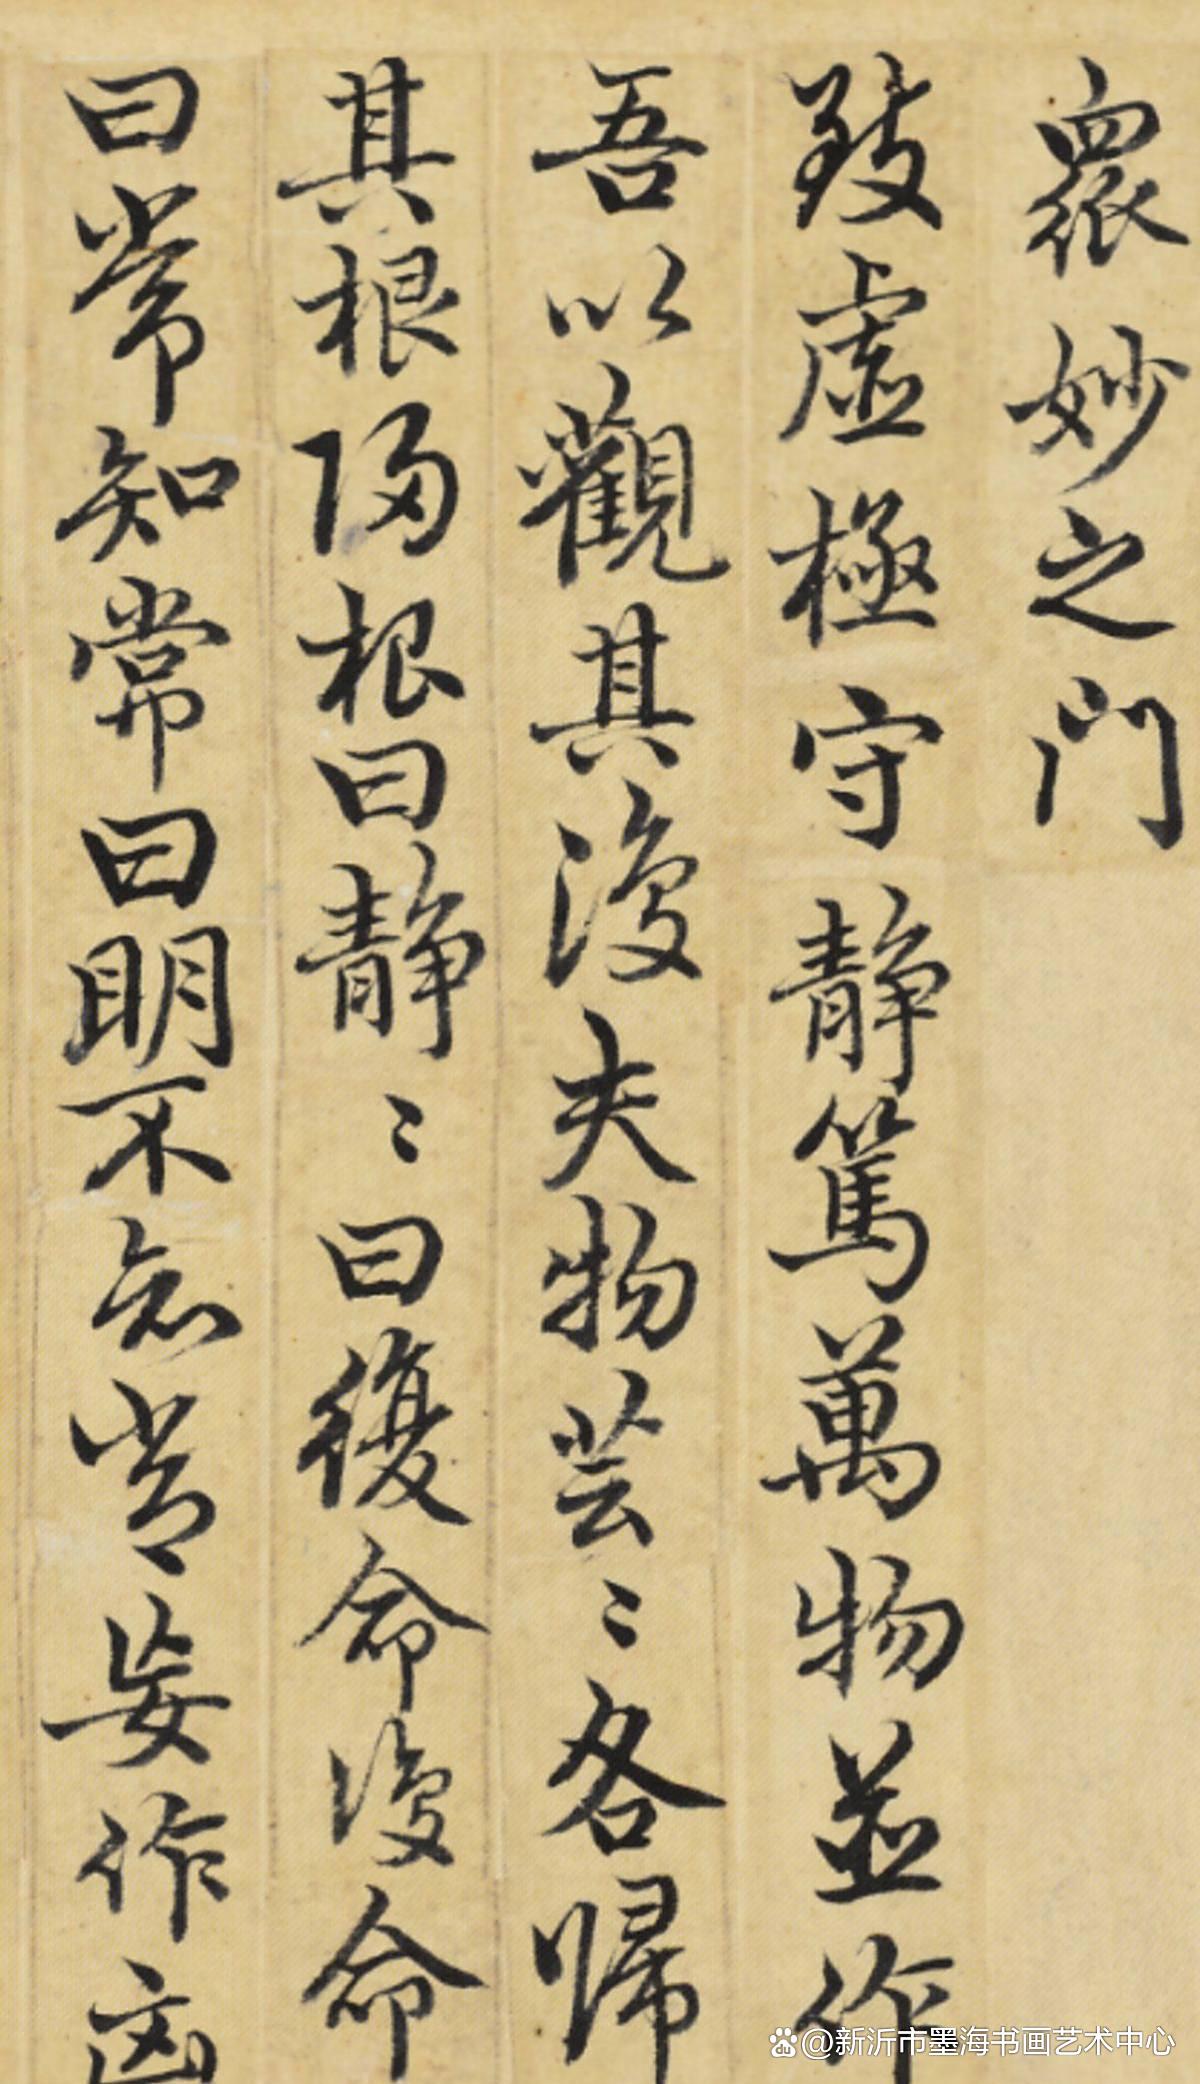 眾妙之門
致虛極守靜篤萬物並作
吾以觀其復夫物芸〻各歸
其根歸根曰靜〻曰復命復命
曰常知常曰明不知常妄作凶
@新沂市墨海书画艺术中心